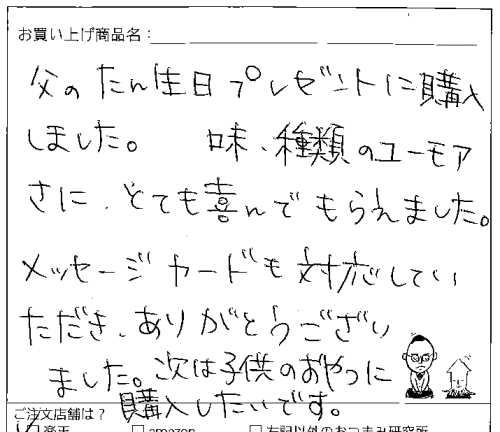 お買い上げ商品名：
父のたん生日プレゼントに購入
しました。 味、種類のユーモア
さに、とても喜んでもらえました。
メッセージカードも対応してい
ただき、ありがとうござい
ました。次は子供のおやつに
購入したいです。
ご注文店舗は？
楽天 □ amazon □ 左記以外のおつまみ研究所